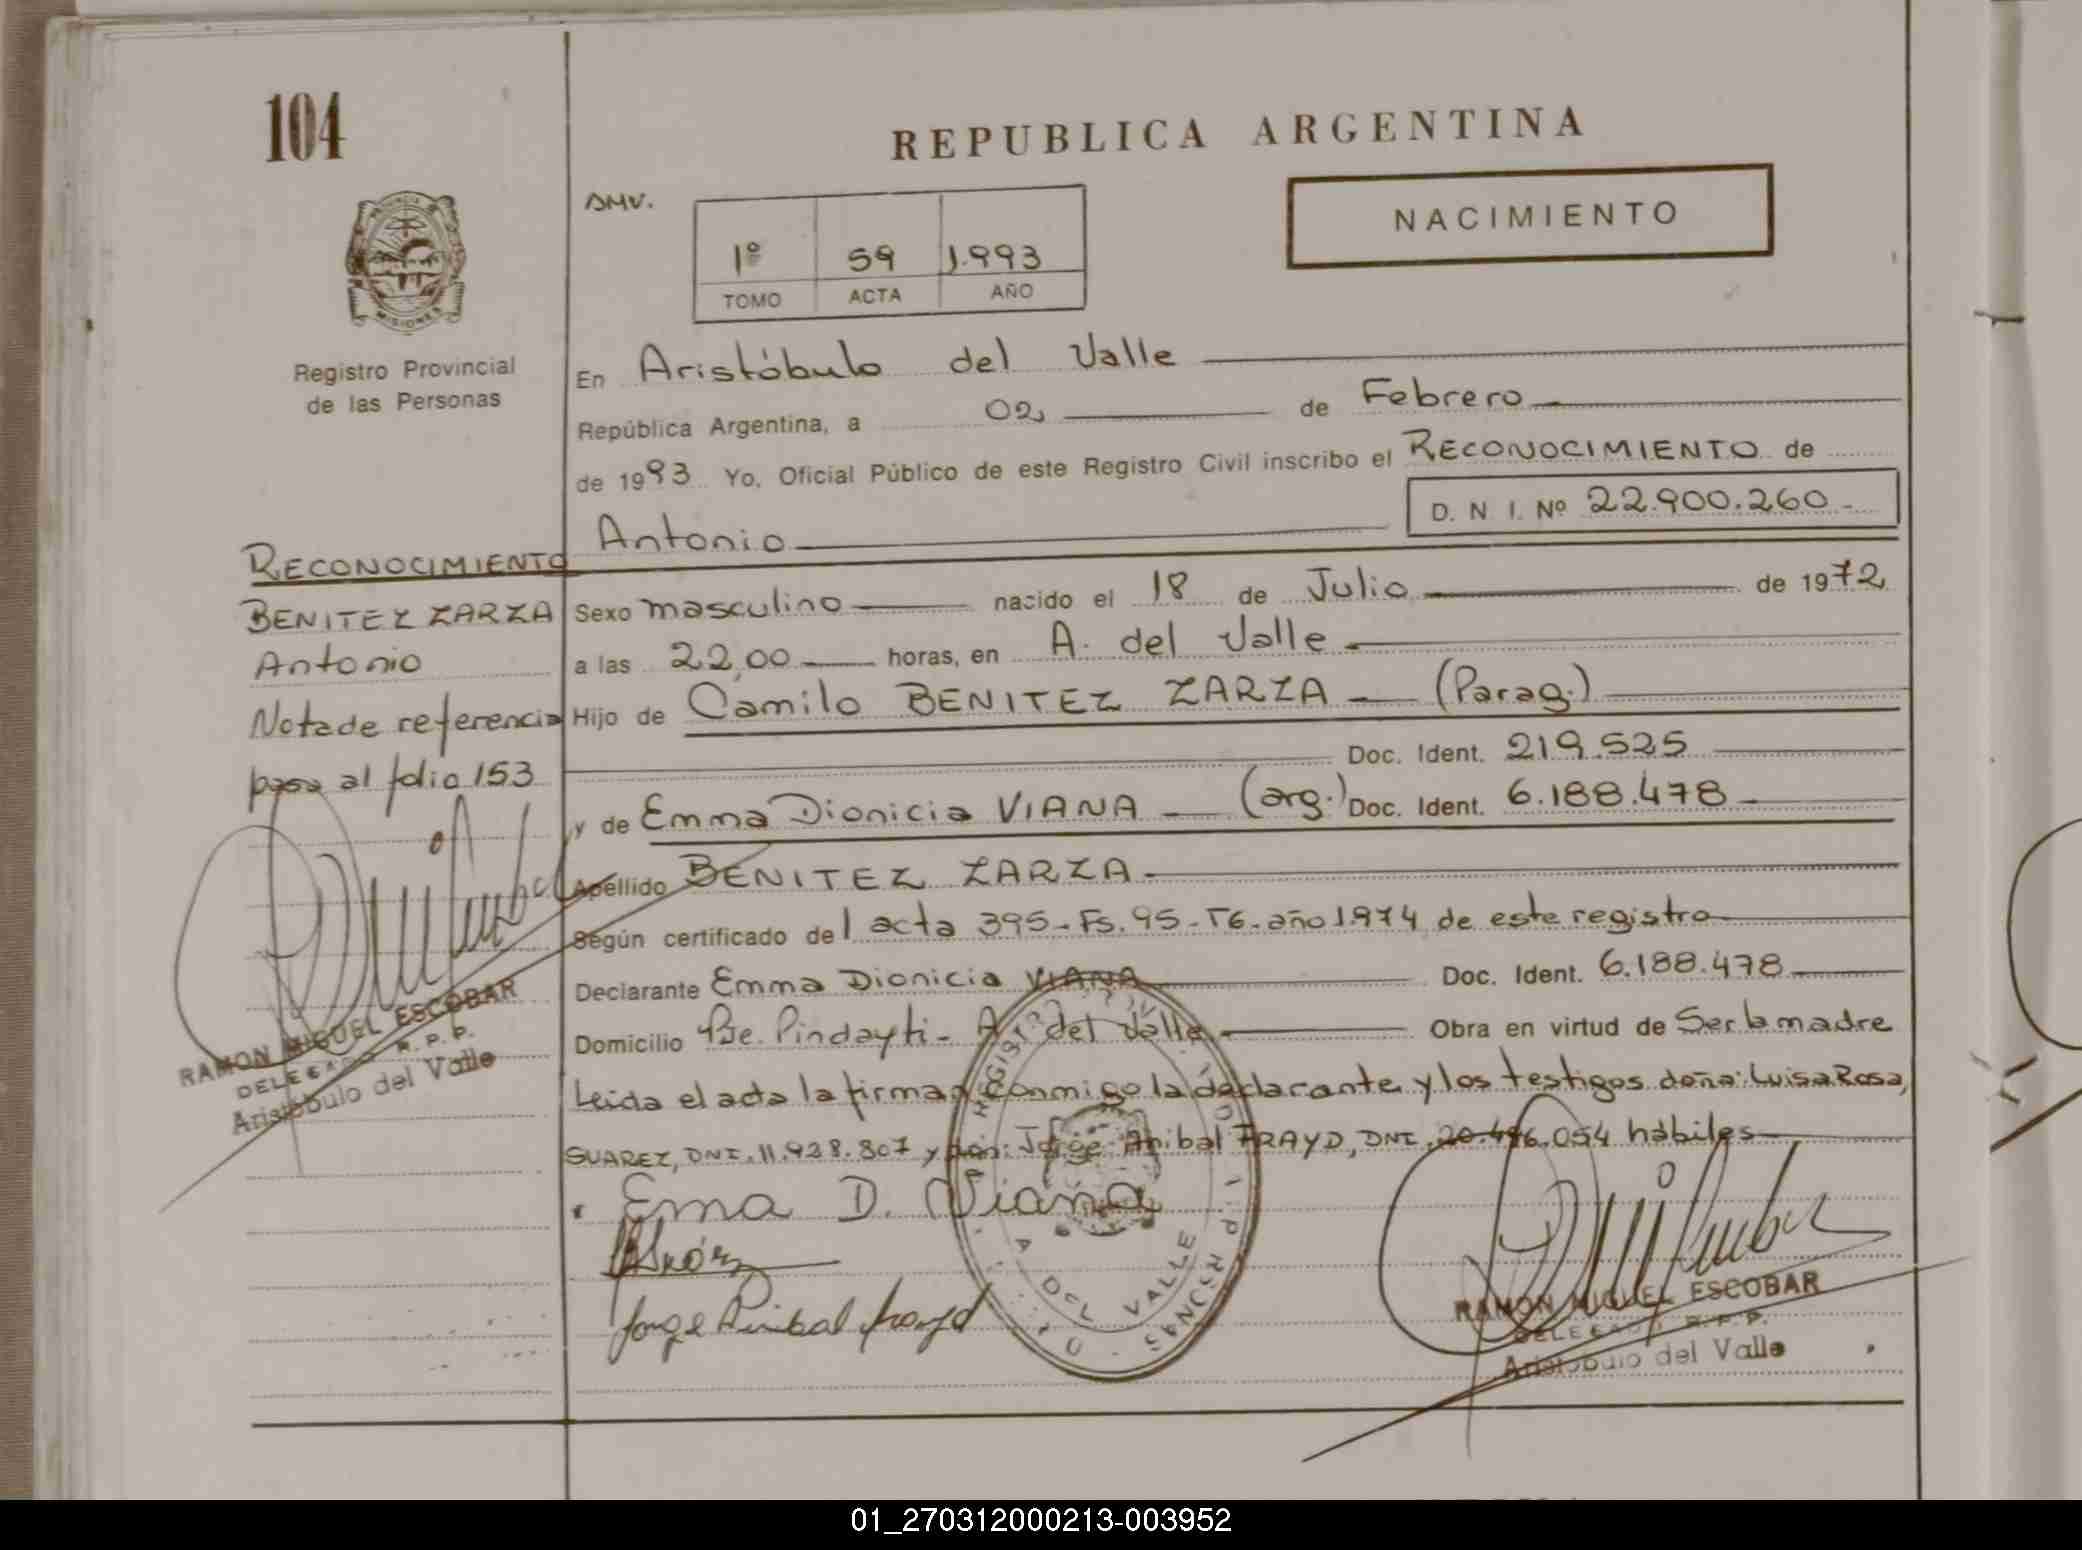 104
REPUBLICA ARGENTINA
PROVINCIA
MISIONES
Registro Provincial
de las Personas
DMV.
1º 59 1.993
TOMO ACTA AÑO
NACIMIENTO
En Aristóbulo del Valle
República Argentina, a 02 de Febrero
de 1993 Yo, Oficial Público de este Registro Civil inscribo el RECONOCIMIENTO de
D. N. I. Nº 22.900.260
Antonio
RECONOCIMIENTO
BENITEZ ZARZA
Antonio
Nota de referencia
pasa al folio 153
RAMON MIGUEL ESCOBAR
DELEGADO R. P. P.
Aristóbulo del Valle
Sexo masculino nacido el 18 de Julio de 1972
a las 22,00 horas, en A. del Valle
Hijo de Camilo BENITEZ ZARZA (Parag.)
Doc. Ident. 219.525
y de Emma Dionicia VIANA (arg.) Doc. Ident. 6.188.478
Apellido BENITEZ ZARZA
Según certificado del acta 395-Fs.95-T6-año 1974 de este registro
Declarante Emma Dionicia VIANA Doc. Ident. 6.188.478
Domicilio Pindayti- A. del Valle Obra en virtud de Ser la madre
Leida el acta la firman conmigo la declarante y los testigos doña: Luisa Rosa,
SUAREZ, DNI. 11.928.807 y don: Jorge Anibal FRAYD, DNI. 20.496.054 hábiles
Ema D. Viana
Jorge Anibal Frayd
A DEL VALLE
RAMON MIGUEL ESCOBAR
DELEGADO R. P. P.
Aristóbulo del Valle
01_270312000213-003952